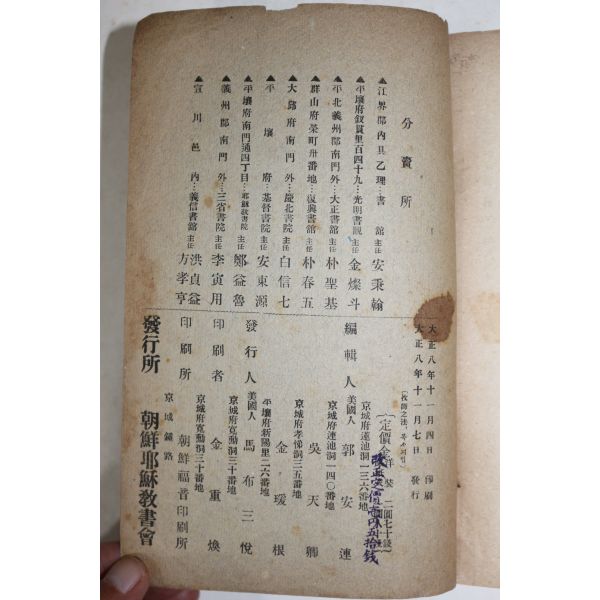 大正八年十一月四日 印刷
大正八年十一月七日 發行
京城府蓮池洞一三六番地
編輯人 美國人 郭安連
京城府蓮池洞一四〇番地
吳天卿
京城府孝悌洞三五番地
金瑗根
平壤府新陽里二六番地
發行人 美國人 馬布三悅
京城府寬勳洞三十番地
印刷者 金重煥
京城府寬勳洞三十番地
印刷所 朝鮮福音印刷所
京城鍾路
發行所 朝鮮耶穌教書會
分賣所
▲江界郡內 書館 主任 安秉翰
▲平壤府釵貫里百四十九…光明書觀 主任 金燦斗
▲平北義州郡南門外…大正書館 主任 朴聖基
▲群山府榮町卅番地…復興書館 主任 朴春五
▲大邱府南門外…慶北書院 主任 白信七
▲平壤府…基督書院 主任 安東源
▲平壤府南門通四丁目…耶穌教書院 主任 鄭益魯
▲義州郡南門外…三省書院 主任 李寅用
▲宣川邑內…義信書館 主任 洪貞益 方孝亨